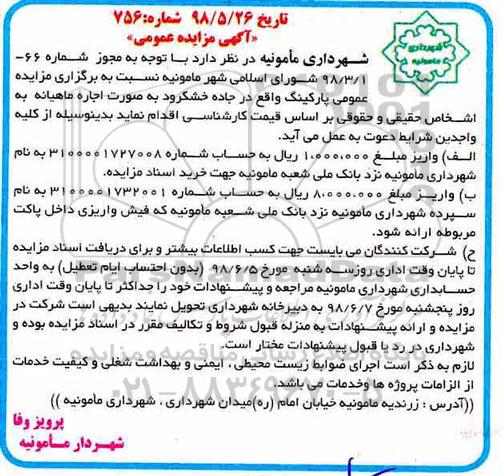 تاریخ ۹۸/۵/۲۶ شماره: ۷۵۶
«آگهی مزایده عمومی»
شهرداری
مأمونیه
شهرداری مأمونیه در نظر دارد با توجه به مجوز شماره ۶۶-
۹۸/۳/۱ شورای اسلامی شهر مامونیه نسبت به برگزاری مزایده
عمومی پارکینگ واقع در جاده خشکرود به صورت اجاره ماهیانه به
اشخاص حقیقی و حقوقی بر اساس قیمت کارشناسی اقدام نماید بدینوسیله از کلیه
واجدین شرایط دعوت به عمل می آید.
الف) واریز مبلغ ۱.۰۰۰.۰۰۰ ریال به حساب شماره ۳۱۰۰۰۰۱۷۲۷۰۰۸ به نام
شهرداری مأمونیه نزد بانک ملی شعبه مأمونیه جهت خرید اسناد مزایده.
ب) واریز مبلغ ۸.۰۰۰.۰۰۰ ریال به حساب شماره ۳۱۰۰۰۰۱۷۳۲۰۰۱ به نام
سپرده شهرداری مأمونیه نزد بانک ملی شعبه مأمونیه که فیش واریزی داخل پاکت
مربوطه ارائه شود.
ح) شرکت کنندگان می بایست جهت کسب اطلاعات بیشتر و برای دریافت اسناد مزایده
تا پایان وقت اداری روز سه شنبه مورخ ۹۸/۶/۵ (بدون احتساب ایام تعطیل) به واحد
حسابداری شهرداری مامونیه مراجعه و پیشنهادات خود را حداکثر تا پایان وقت اداری
روز پنجشنبه مورخ ۹۸/۶/۷ به دبیرخانه شهرداری تحویل نمایند بدیهی است شرکت در
مزایده و ارائه پیشنهادات به منزله قبول شروط و تکالیف مقرر در اسناد مزایده بوده و
شهرداری در رد یا قبول پیشنهادات مختار است.
لازم به ذکر است اجرای ضوابط زیست محیطی ، ایمنی و بهداشت شغلی و کیفیت خدمات
از الزامات پروژه ها وخدمات می باشد.
((آدرس : زرندیه مامونیه خیابان امام (ره)میدان شهرداری ، شهرداری مأمونیه ))
پرویز وفا
شهردار مأمونیه
۰۲۱-۸۸۳۴۹۶۷۰-۵